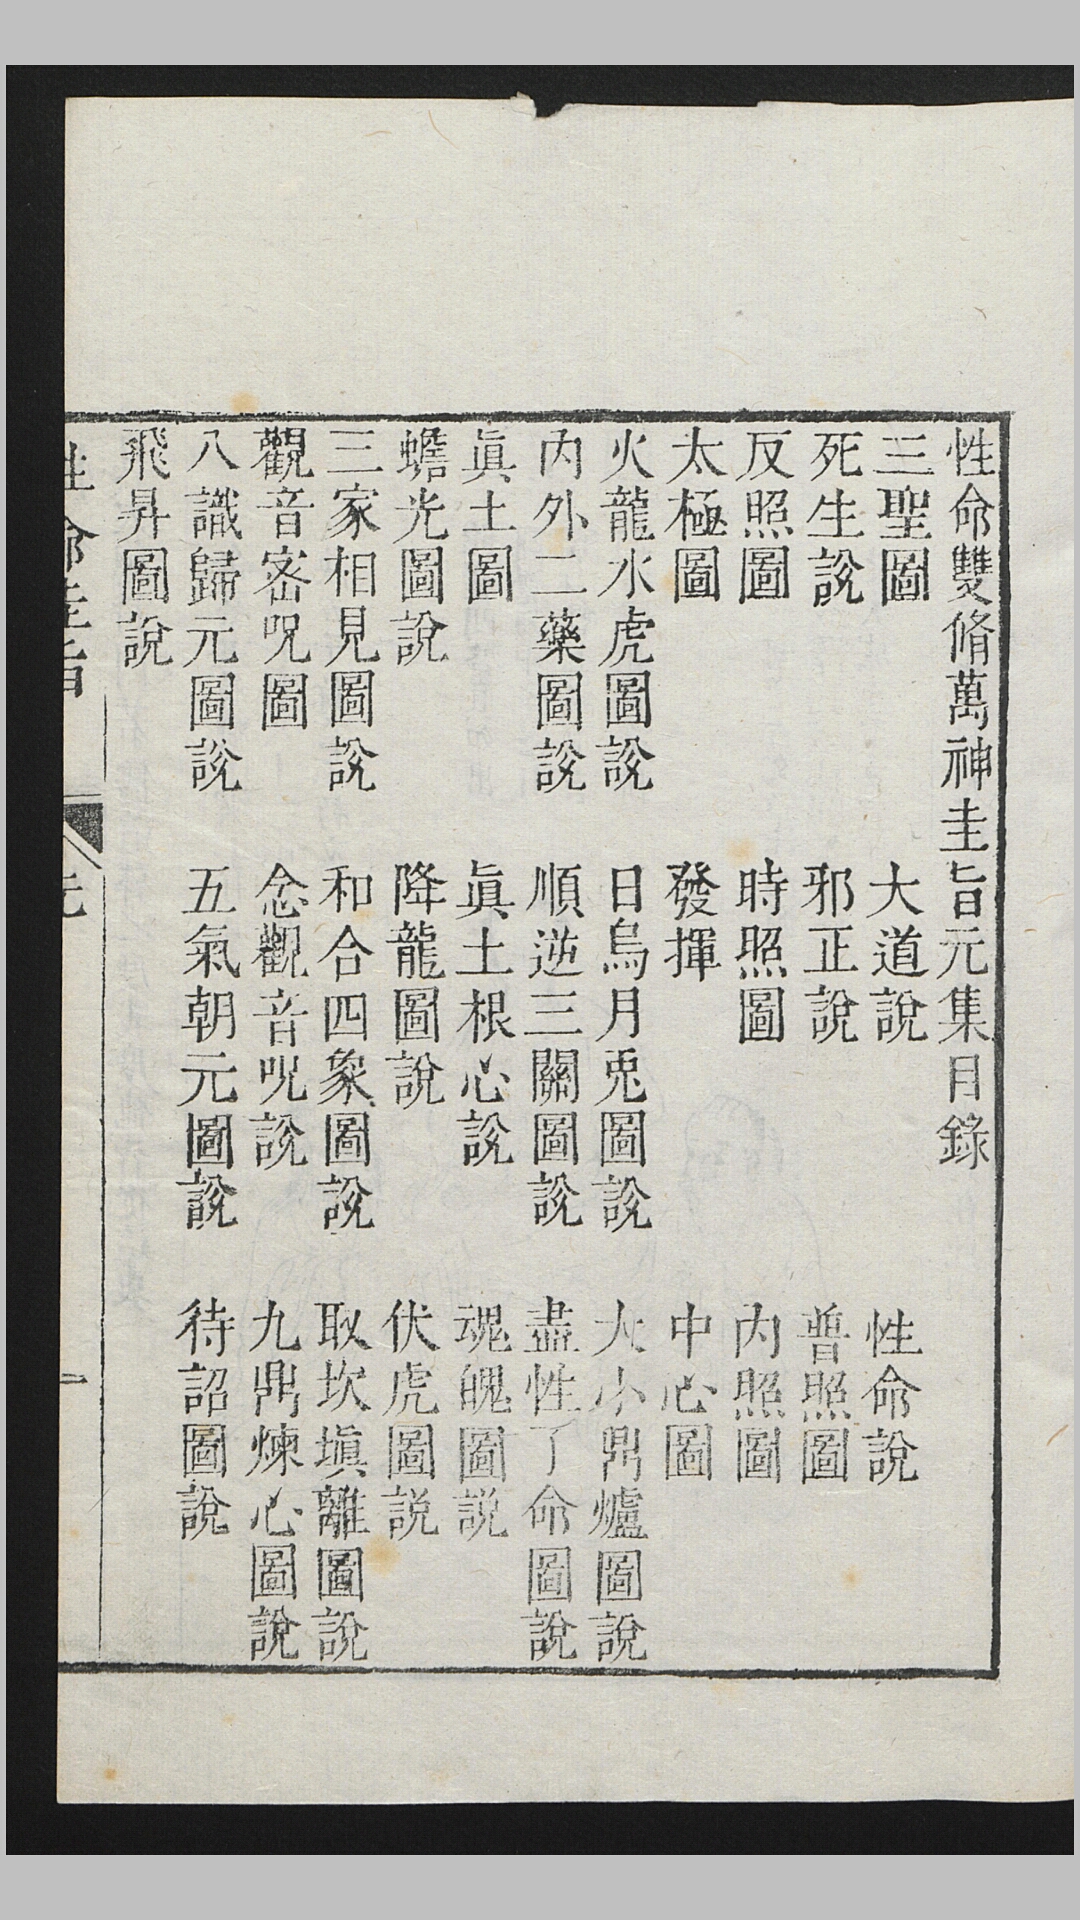 性命雙脩萬神圭旨元集目錄
三聖圖　大道說　性命說
死生說　邪正說　普照圖
反照圖　時照圖　內照圖
太極圖　發揮　中心圖
火龍水虎圖說　日烏月兎圖說　大小鼎爐圖說
內外二藥圖說　順逆三關圖說　盡性了命圖說
眞土圖　眞土根心說　魂魄圖說
蟾光圖說　降龍圖說　伏虎圖說
三家相見圖說　和合四象圖說　取坎塡離圖說
觀音密呪圖　念觀音呪說　九鼎煉心圖說
八識歸元圖說　五氣朝元圖說　待詔圖說
飛昇圖說
性命圭旨　元　一